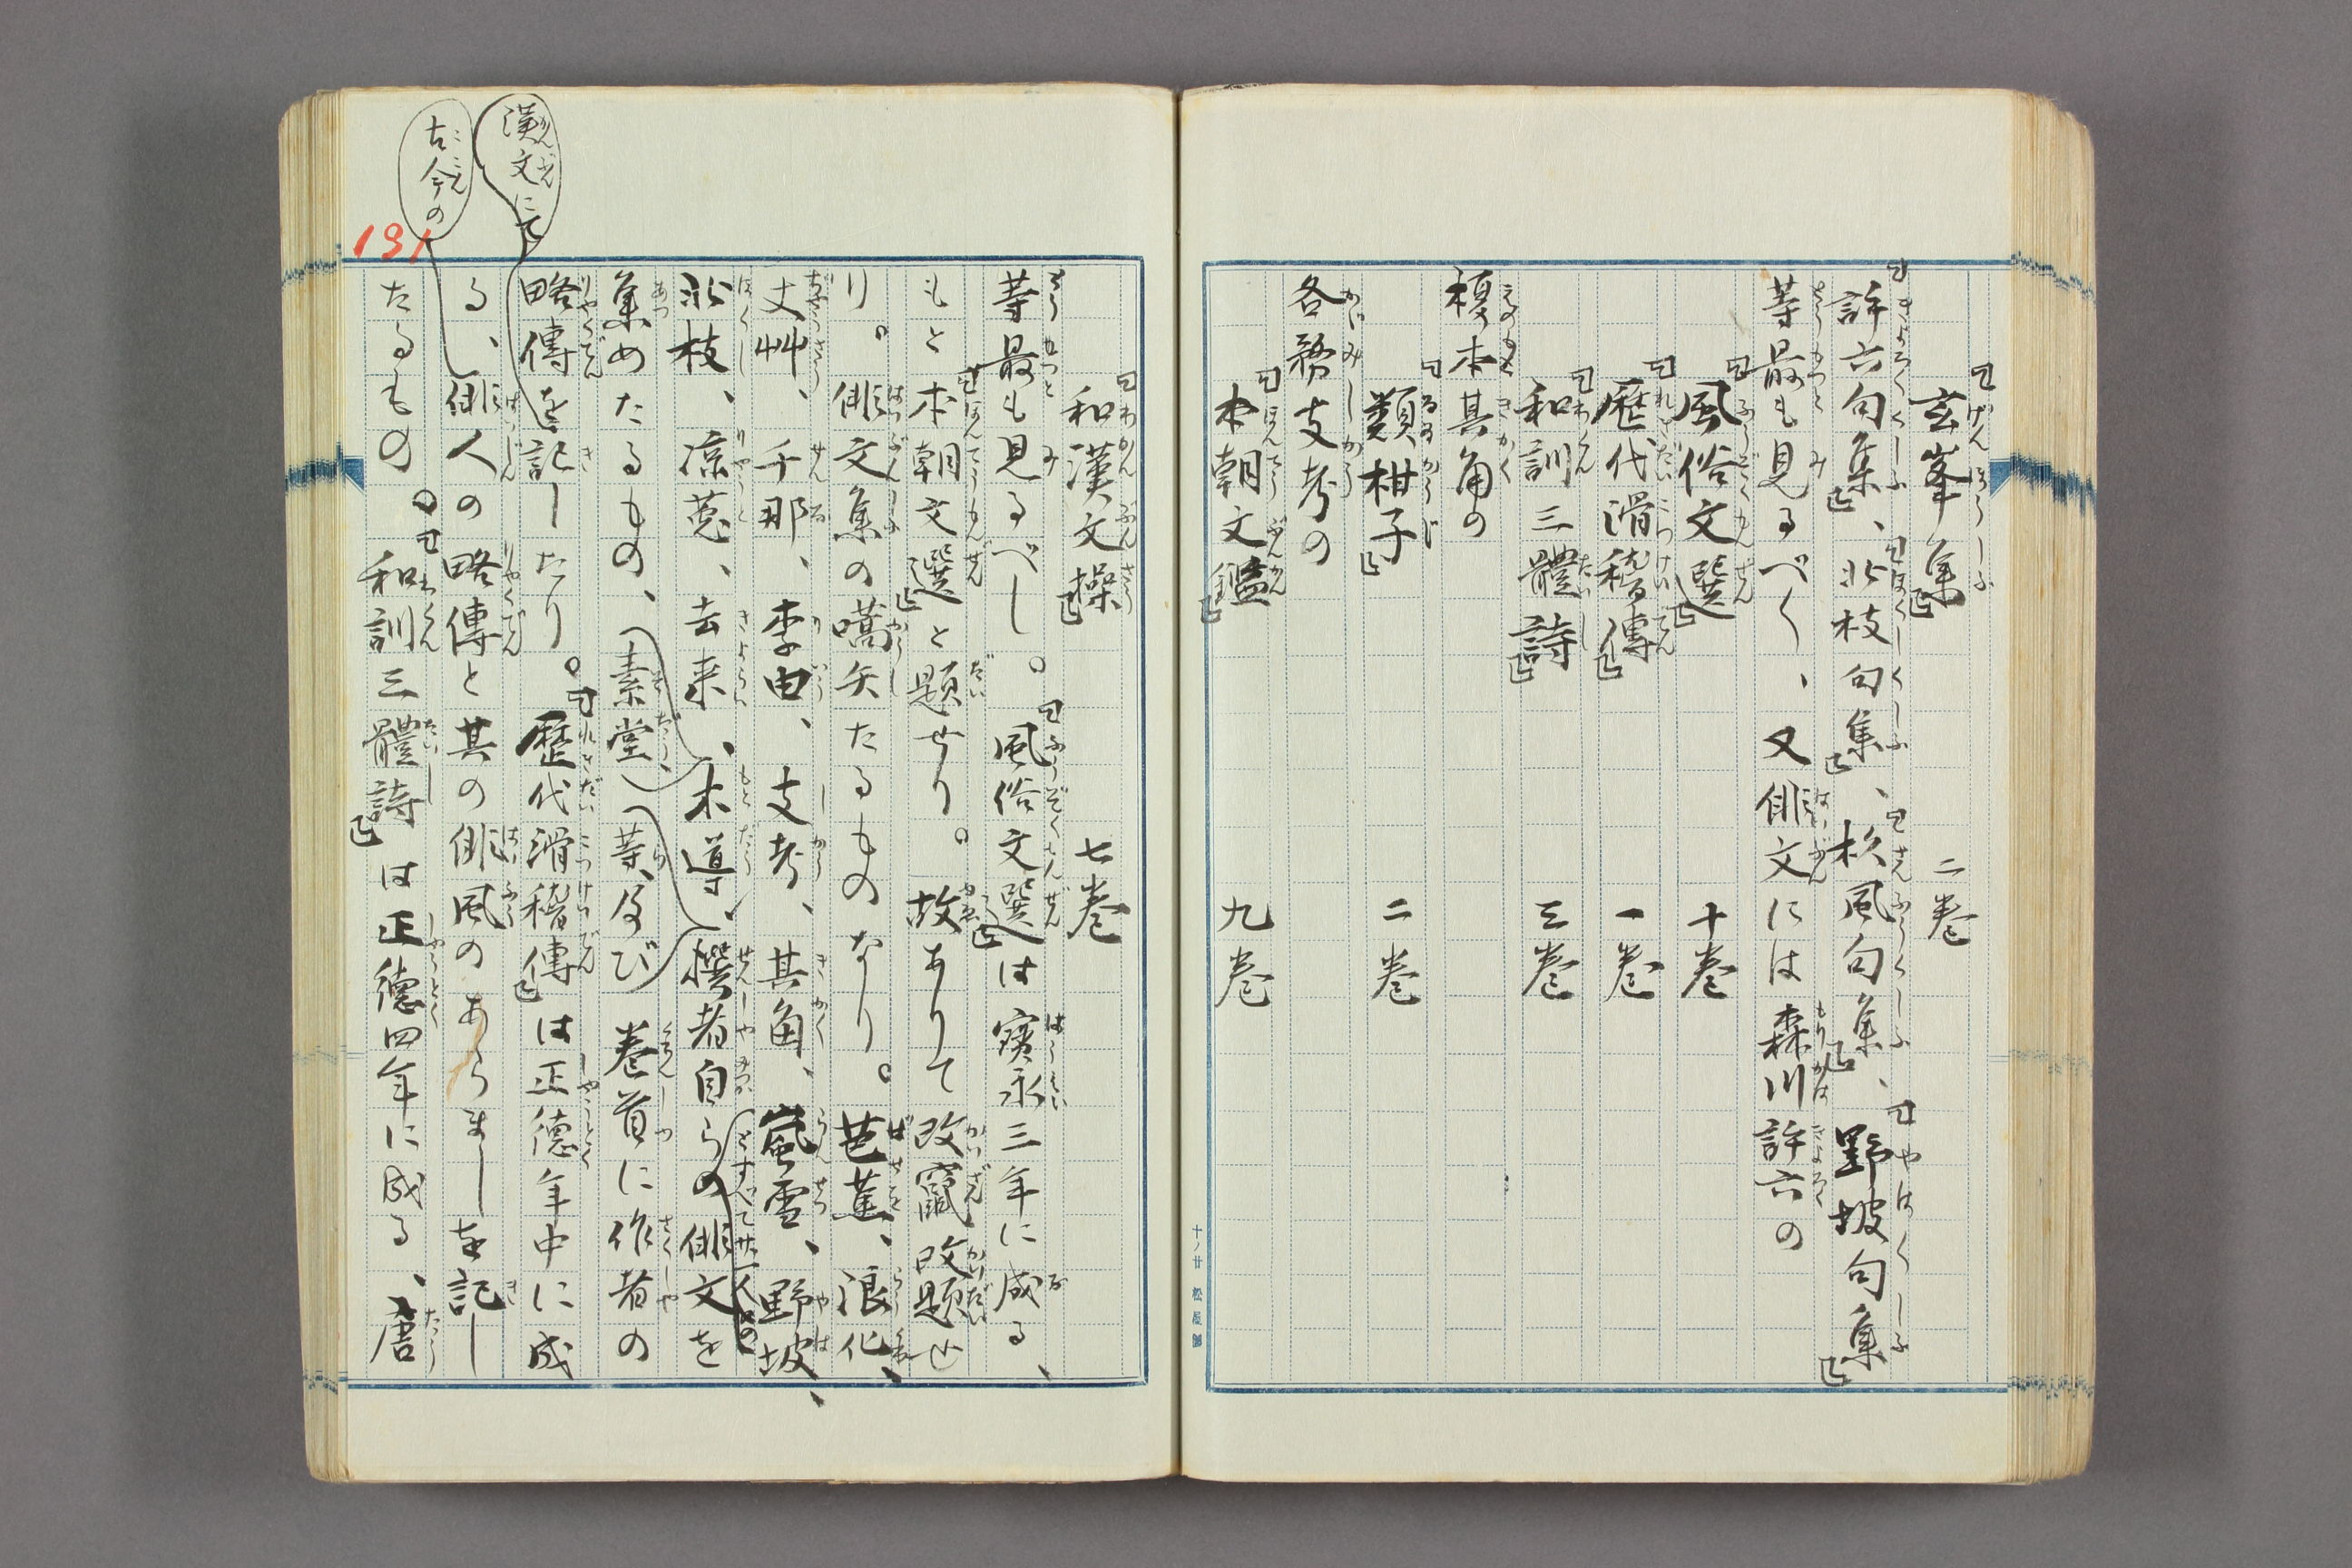 『玄峯集』 二巻
『許六句集』、『北枝句集』、『杉風句集』、『野坡句集』
等最も見るべく、又俳文には森川許六の
『風俗文選』 十巻
『歴代滑稽傳』 一巻
『和訓三體詩』 三巻
榎本其角の
『類柑子』 二巻
各務支考の
『本朝文鑑』 九巻
十ノ廿 松屋製
『和漢文操』 七巻
等最も見るべし。『風俗文選』は寳永三年に成る、
もと『本朝文選』と題せり。故ありて改竄改題せ
り。俳文集の嚆矢たるものなり。芭蕉、浪化、
丈艸、千那、李由、支考、其角、嵐雪、野坡、
北枝、凉菟、去来、木導、撰者自らの俳文を
集めたるもの、(素堂)(等、及び巻首に作者の
とすべて廿一人との
漢文にて
略傳を記したり。『歴代滑稽傳』は正德年中に成
古今の
る、俳人の略傳と其の俳風のあらましを記し
たるもの。『和訓三體詩』は正德四年に成る、唐
191